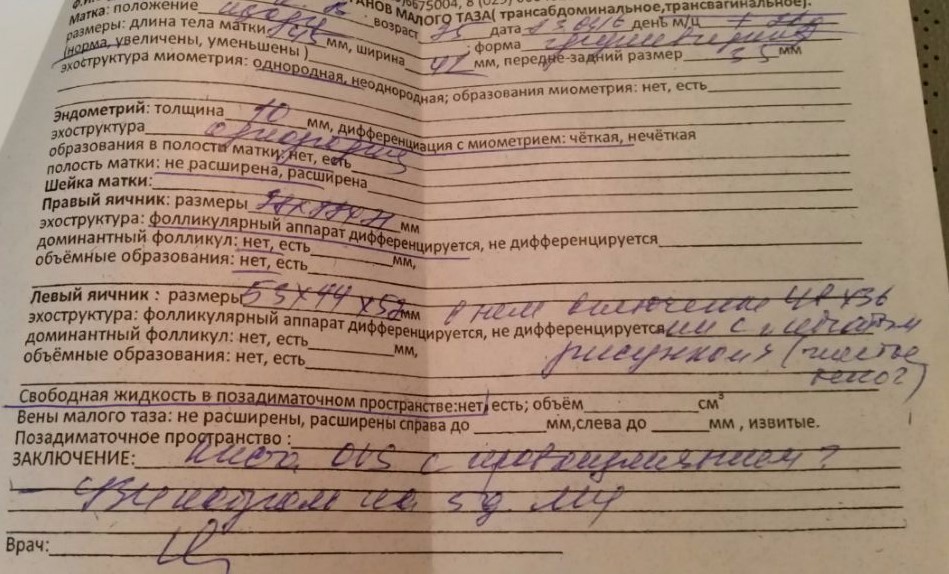 ГАНОВ МАЛОГО ТАЗА( трансабдоминальное,трансвагинальное).
Матка: положение возраст 25 дата день м/ц
размеры: длина тела матки мм, ширина 42 мм, передне-задний размер мм , форма
(норма, увеличены, уменьшены )
эхоструктура миометрия: однородная, неоднородная; образования миометрия: нет, есть
Эндометрий: толщина 10 мм, дифференциация с миометрием: чёткая, нечёткая
эхоструктура однородная
образования в полости матки: нет, есть
полость матки: не расширена, расширена
Шейка матки:
Правый яичник: размеры мм
эхоструктура: фолликулярный аппарат дифференцируется, не дифференцируется
доминантный фолликул: нет, есть мм,
объёмные образования: нет, есть
Левый яичник : размеры 53х44 х52мм в нем включение 48х36
эхоструктура: фолликулярный аппарат дифференцируется, не дифференцируется мм с сетчатым
доминантный фолликул: нет, есть мм, рисунком
объёмные образования: нет, есть
Свободная жидкость в позадиматочном пространстве:нет, есть; объём см³
Вены малого таза: не расширены, расширены справа до мм,слева до мм , извитые.
Позадиматочное пространство :
ЗАКЛЮЧЕНИЕ: киста OVS с кровоизлиянием?
на 5 д. МЦ
Врач: